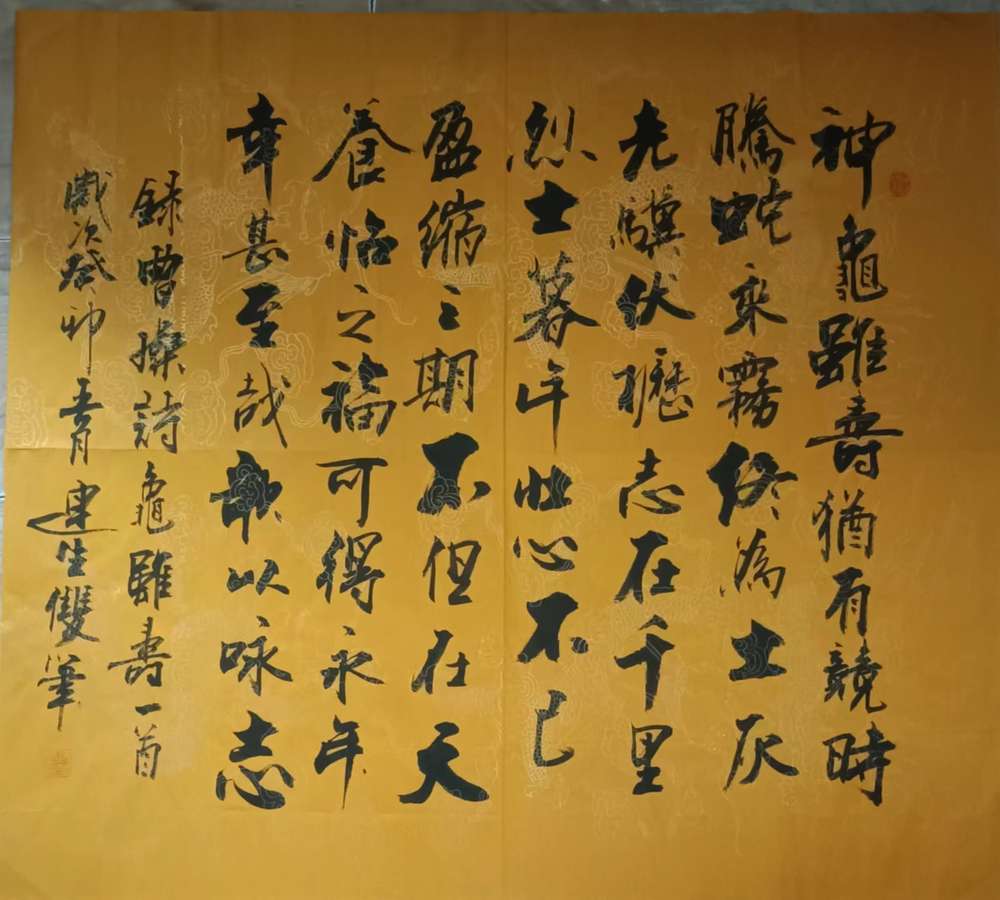 神龜雖壽猶有競時
騰蛇乘霧終為土灰
老驥伏櫪志在千里
烈士暮年壯心不已
盈縮之期不但在天
養怡之福可得永年
幸甚至哉歌以咏志
録曹操詩龜雖壽一首
歲次癸卯五月連生雙筆